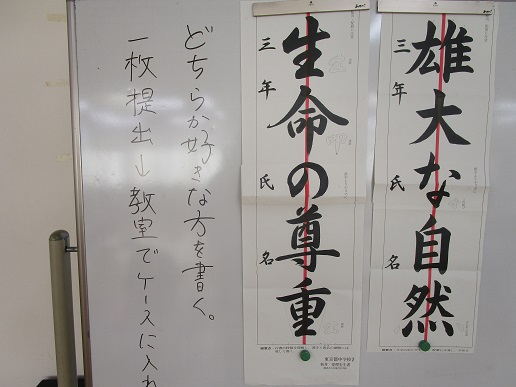 雄大な自然
三年 氏名
生命の尊重
三年 氏名
どちらか好きな方を書く。
一枚提出→教室でケースに入れ